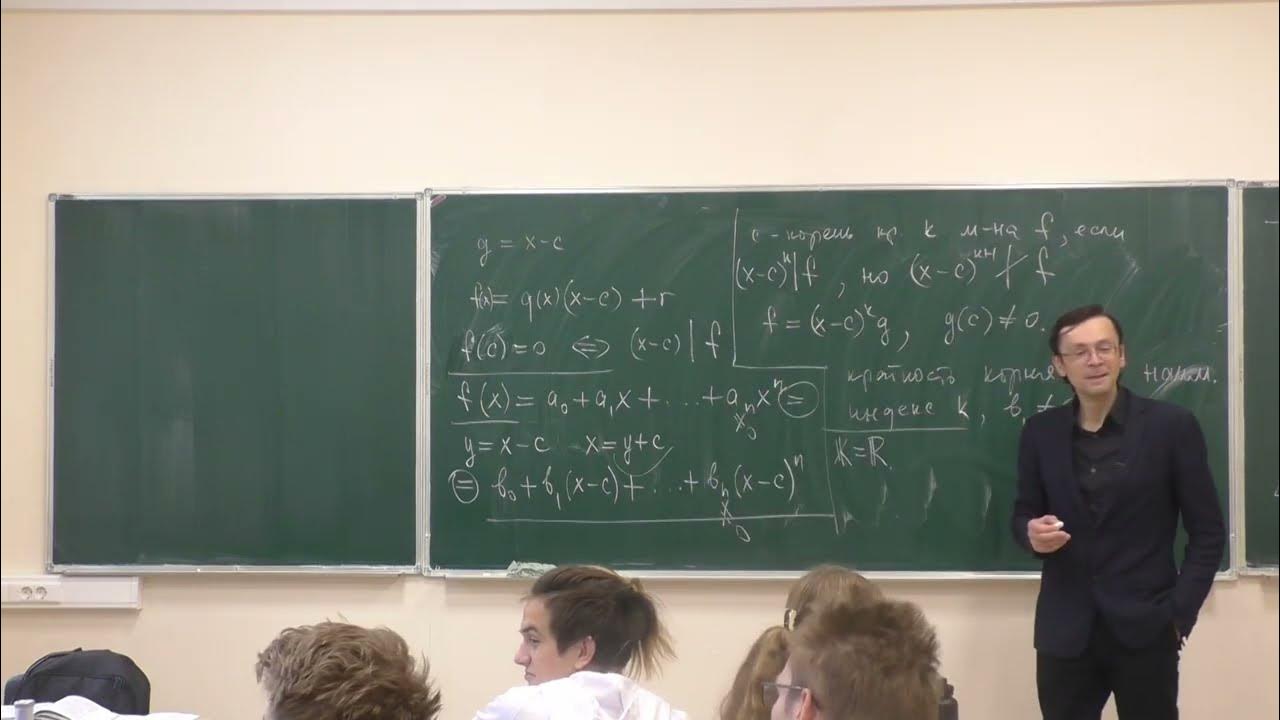 g = x-c
f(x) = q(x)(x-c) + r
f(c) = 0 ⇔ (x-c) | f
f(x) = a₀ + a₁x + ... + aₙxⁿ =
≠ 0
y = x-c x = y+c
= b₀ + b₁(x-c) + ... + bₙ(x-c)ⁿ
≠ 0
c - корень кр k м-на f, если
(x-c)ᵏ | f, но (x-c)ᵏ⁺¹ ∤ f
f = (x-c)ᵏ g, g(c) ≠ 0.
кратность корня наим.
индекс k, b ≠
𝕂 = ℝ.